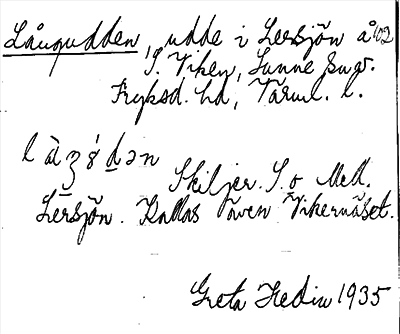 Långudden, udde i Lersjön å 102
S. Viken, Sunne snr.
Fryksd. hd, Värml. l.
Skiljer S. o Mell.
Lersjön. Kallas även Vikernäset.
Greta Hedin 1935